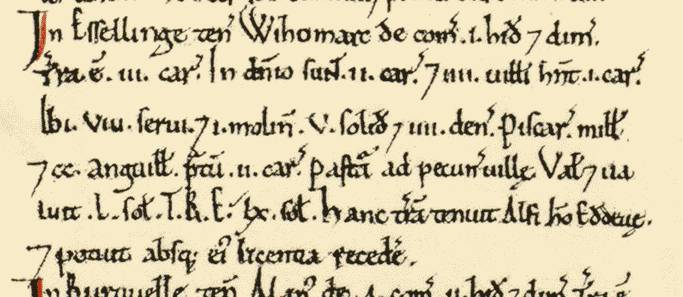 In Essellinge ten̄ Wihomarc de com̄. i. hid̄ ⁊ dim̄.
Tr̄a. ē. iii. car̄. In dn̄io sun̄. ii. car̄. ⁊ iiii. uitti hn̄t. i. car̄.
Ibi. viii. serui. ⁊ i. molin̄. v. solid̄ ⁊ iiii. den̄. Piscar̄. mitt
⁊ cc. anguitt. p̄tū. ii. car̄. Pastā ad pecun̄ uillę. Vat ⁊ ualuit .L. sot. T.R.E. lx. sot. Hanc tr̄a tenuit Alsi hō Eddeuę.
⁊ potuit absq; ei᷒ licentia recedē.
In Buruuelle ten̄ Alan᷒ de